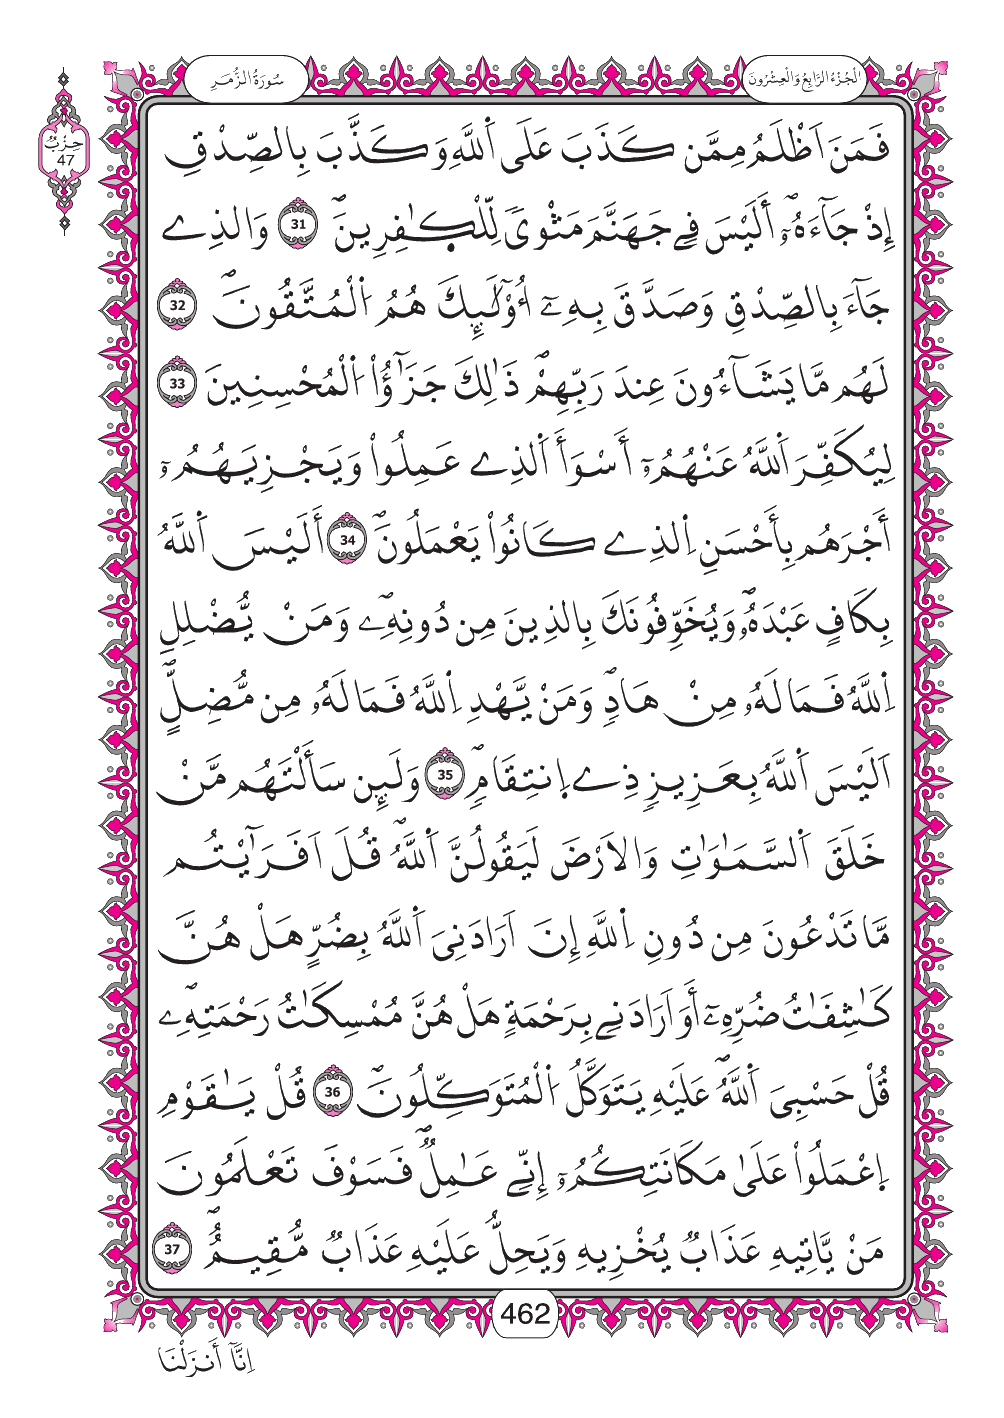 الجُزْءُ الرَّابِعُ وَالْعِشْرُونَ
سُورَةُ الزُّمَرِ
حِزْبٌ
47
فَمَنَ اَظْلَمُ مِمَّن كَذَبَ عَلَى اَ۬للَّهِ وَكَذَّبَ بِالصِّدْقِ
إِذْ جَآءَهُۥٓۖ أَلَيْسَ فِے جَهَنَّمَ مَثْوىٗ لِّلْكٰ۪فِرِينَۖ 31 وَالذِے
جَآءَ بِالصِّدْقِ وَصَدَّقَ بِهِۦٓ أُوْلَٰٓئِكَ هُمُ اُ۬لْمُتَّقُونَۖ 32
لَهُم مَّا يَشَآءُونَ عِندَ رَبِّهِمْۖ ذَٰلِكَ جَزَٰٓؤُاْ اُ۬لْمُحْسِنِينَ 33
لِيُكَفِّرَ اَ۬للَّهُ عَنْهُمُۥٓ أَسْوَأَ اَ۬لذِے عَمِلُواْ وَيَجْزِيَهُمُۥٓ
أَجْرَهُم بِأَحْسَنِ اِ۬لذِے كَانُواْ يَعْمَلُونَۖ 34 أَلَيْسَ اَ۬للَّهُ
بِكَافٍ عَبْدَهُۥۖ وَيُخَوِّفُونَكَ بِالذِينَ مِن دُونِهِۦۖ وَمَنْ يُّضْلِلِ
اِ۬للَّهُ فَمَا لَهُۥ مِنْ هَادٖۖ وَمَنْ يَّهْدِ اِ۬للَّهُ فَمَا لَهُۥ مِن مُّضِلٍّۖ
اَلَيْسَ اَ۬للَّهُ بِعَزِيزٖ ذِے اِ۪نتِقَامٖۖ 35 وَلَئِن سَأَلْتَهُم مَّنْ
خَلَقَ اَ۬لسَّمَٰوَٰتِ وَالَارْضَ لَيَقُولُنَّ اَ۬للَّهُۖ قُلَ اَفَرَٰٓيْتُم
مَّا تَدْعُونَ مِن دُونِ اِ۬للَّهِ إِنَ اَرَادَنِيَ اَ۬للَّهُ بِضُرٍّ هَلْ هُنَّ
كَٰشِفَٰتُ ضُرِّهِۦٓ أَوَ اَرَادَنِے بِرَحْمَةٍ هَلْ هُنَّ مُمْسِكَٰتُ رَحْمَتِهِۦۖ
قُلْ حَسْبِيَ اَ۬للَّهُۖ عَلَيْهِ يَتَوَكَّلُ اُ۬لْمُتَوَكِّلُونَۖ 36 قُلْ يَٰقَوْمِ
اِ۪عْمَلُواْ عَلَىٰ مَكَانَتِكُمُۥٓ إِنِّے عَٰمِلٞۖ فَسَوْفَ تَعْلَمُونَ
مَنْ يَّاتِيهِ عَذَابٞ يُخْزِيهِ وَيَحِلُّ عَلَيْهِ عَذَابٞ مُّقِيمٌۖ 37
462
اِنَّآ أَنزَلْنَا